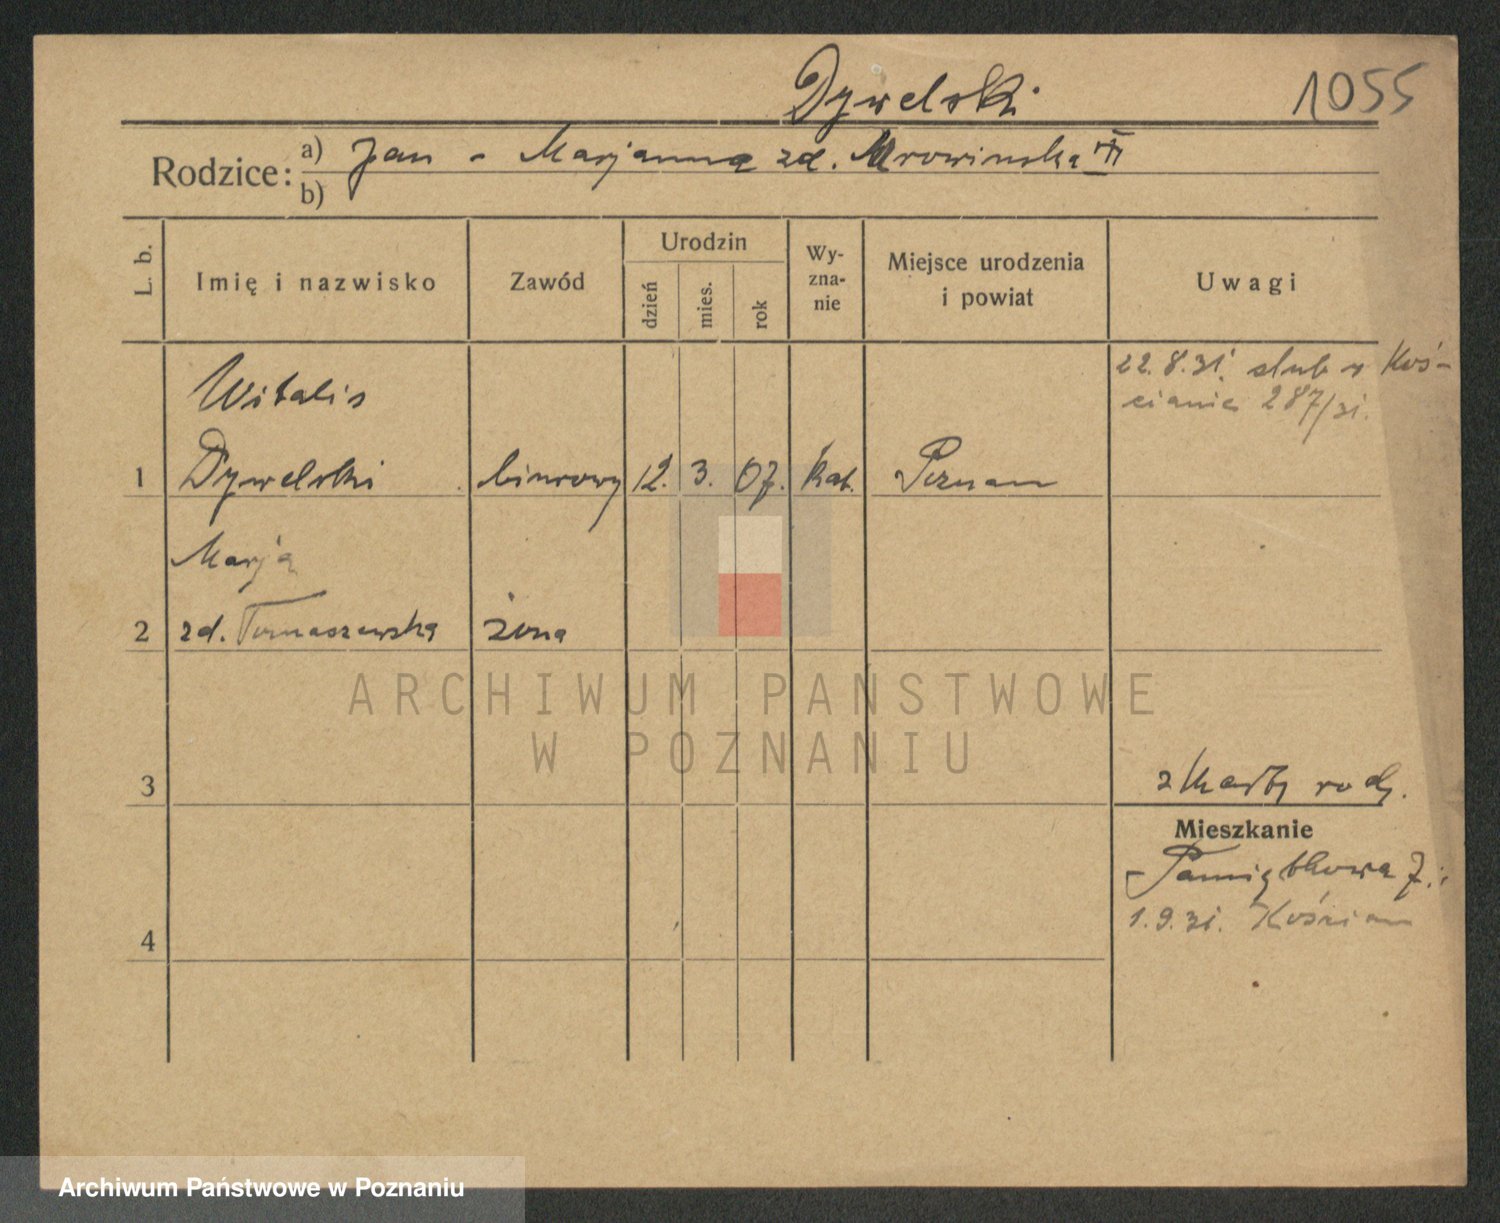 Dywelski
1055
Rodzice:
a) Jan - Marjanna zd. Mrowinska
b)
L. b.
Imię i nazwisko
Zawód
Urodzin
dzień
mies.
rok
Wy-
zna-
nie
Miejsce urodzenia
i powiat
Uwagi
22.8.31. slub w Koś-
cianie 287/31.
Witalis
1 Dywelski biurowy 12. 3. 07. kat. Poznan
Marja
2 zd. Tomaszewska żona
ARCHIWUM PAŃSTWOWE
W POZNANIU
3
z karty rodz.
Mieszkanie
Pamiątkowa 7.
1.9.31. Kościan
4
Archiwum Państwowe w Poznaniu